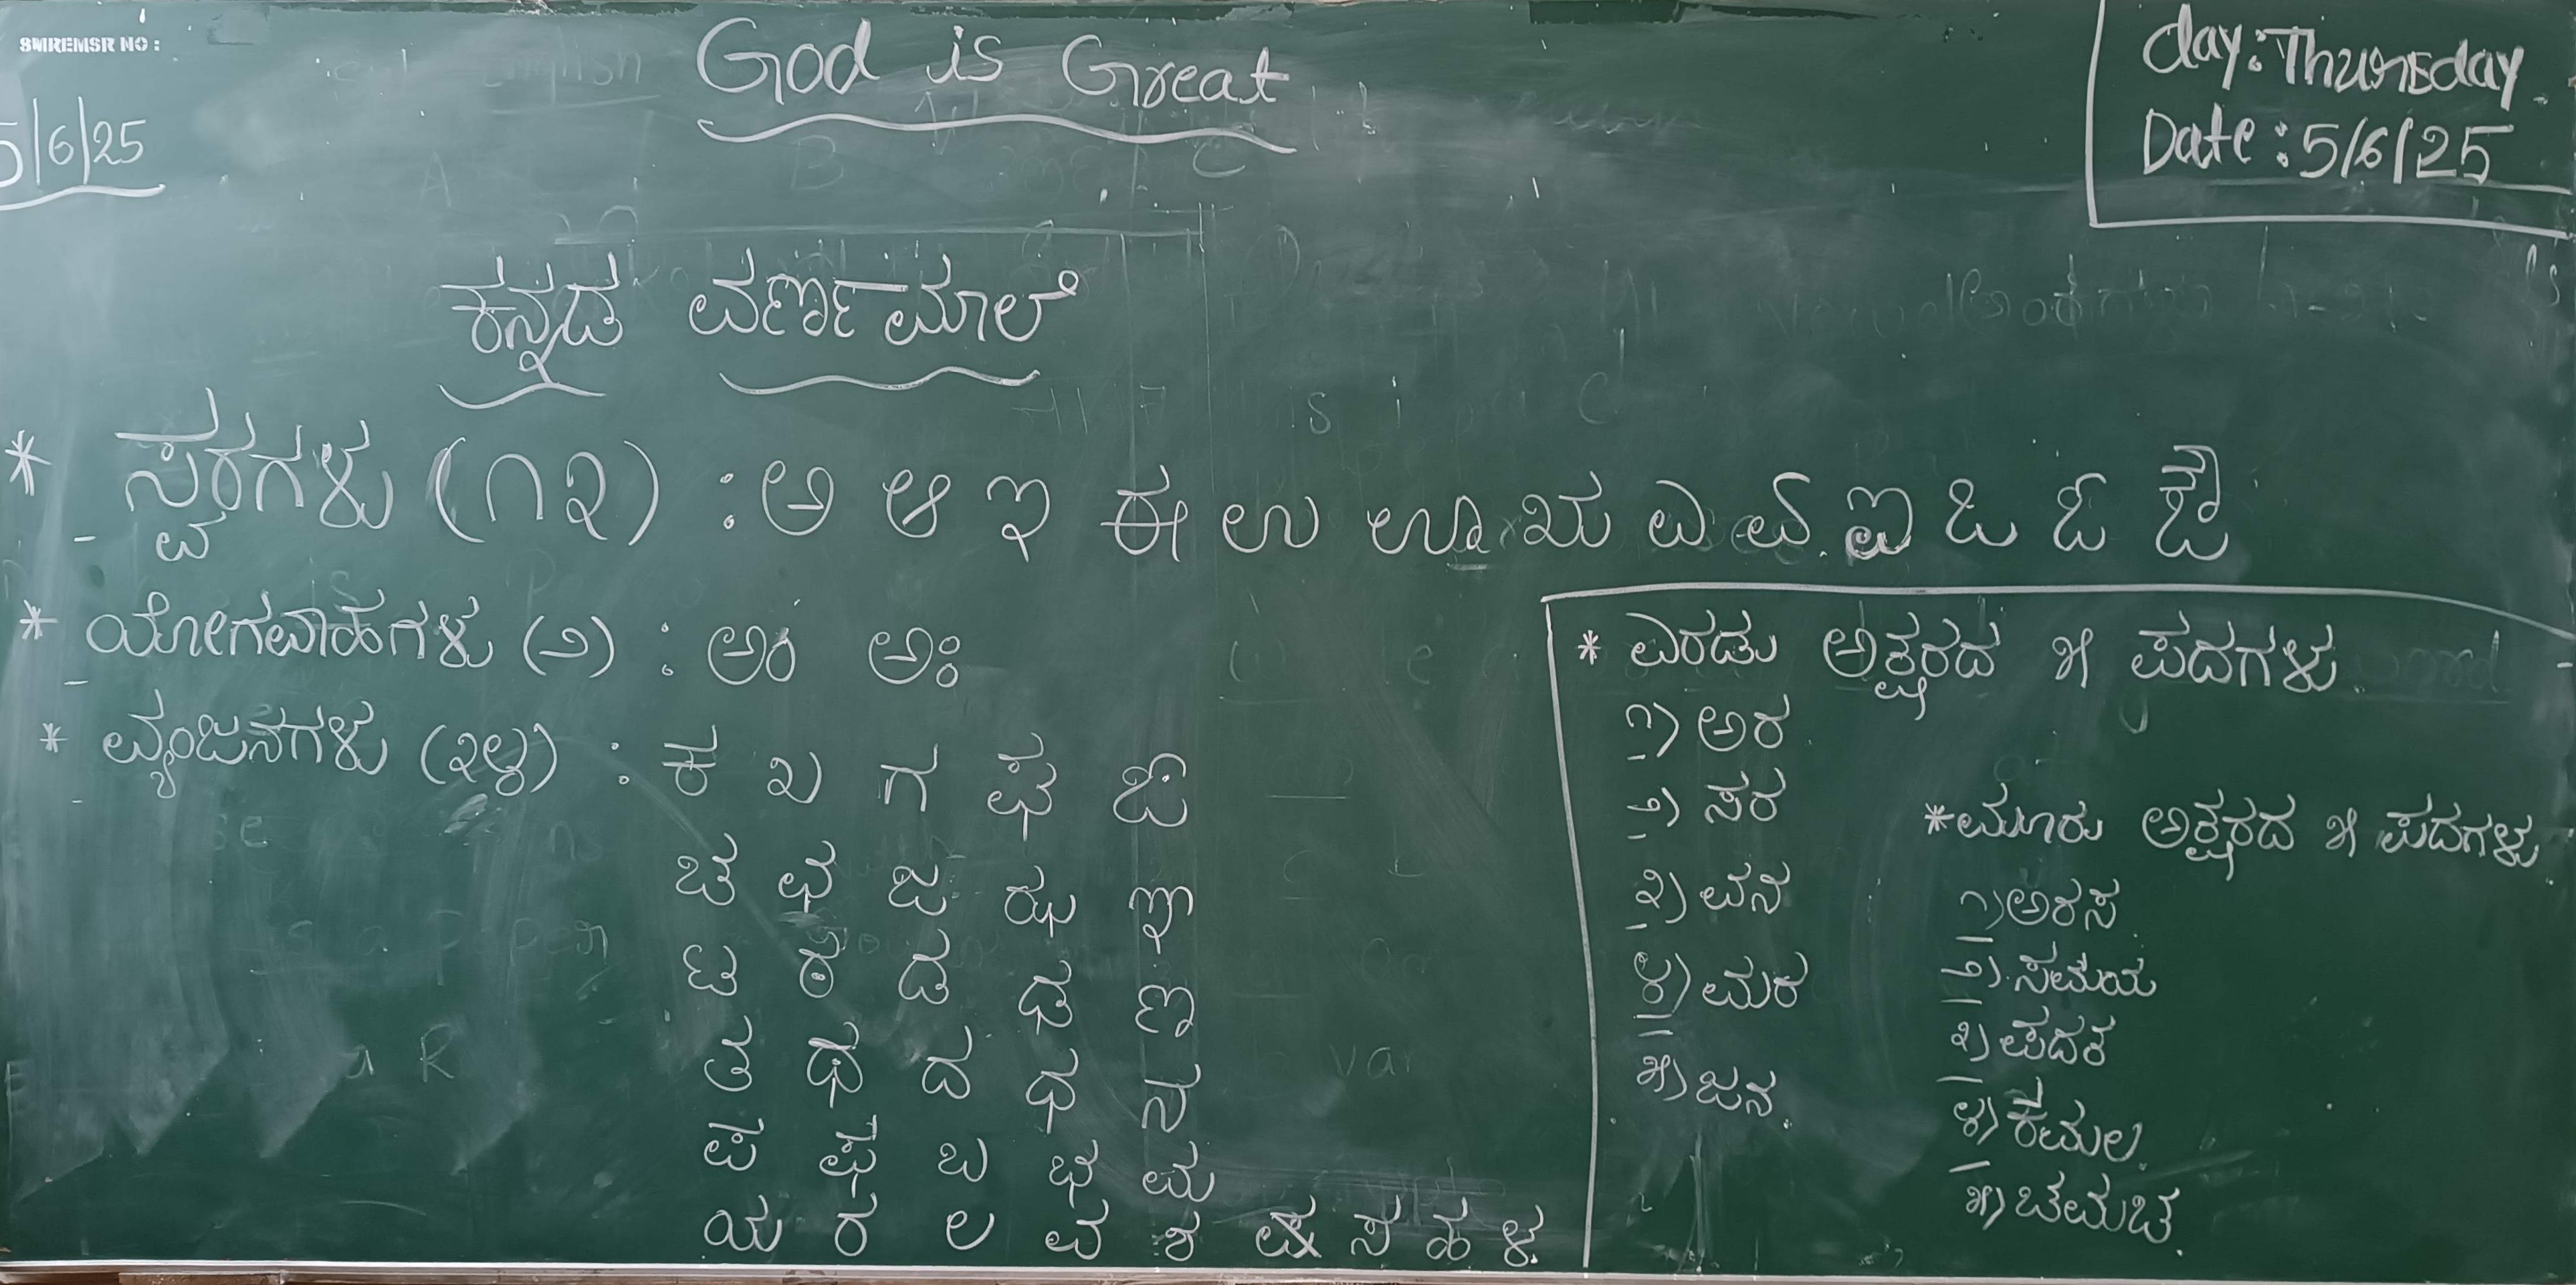 SMREMSR NO :
God is Great
day: Thursday
Date: 5/6/25
5/6/25
ಕನ್ನಡ ವರ್ಣಮಾಲೆ
* ಸ್ವರಗಳು (೧೩) : ಅ ಆ ಇ ಈ ಉ ಊ ಋ ಎ ಏ ಐ ಒ ಓ ಔ
* ಯೋಗವಾಹಗಳು (೨) : ಅಂ ಅಃ
* ವ್ಯಂಜನಗಳು (೩೪) : ಕ ಖ ಗ ಘ ಙ
ಚ ಛ ಜ ಝ ಞ
ಟ ಠ ಡ ಢ ಣ
ತ ಥ ದ ಧ ನ
ಪ ಫ ಬ ಭ ಮ
ಯ ರ ಲ ವ ಶ ಷ ಸ ಹ ಳ
* ಎರಡು ಅಕ್ಷರದ ೫ ಪದಗಳು
೧) ಅರ
೨) ಸರ
೩) ವನ
೪) ಮರ
೫) ಜನ.
* ಮೂರು ಅಕ್ಷರದ ೫ ಪದಗಳು
೧) ಅರಸ
೨) ಸಮಯ
೩) ಪದಕ
೪) ಕಮಲ.
೫) ಚಮಚ.